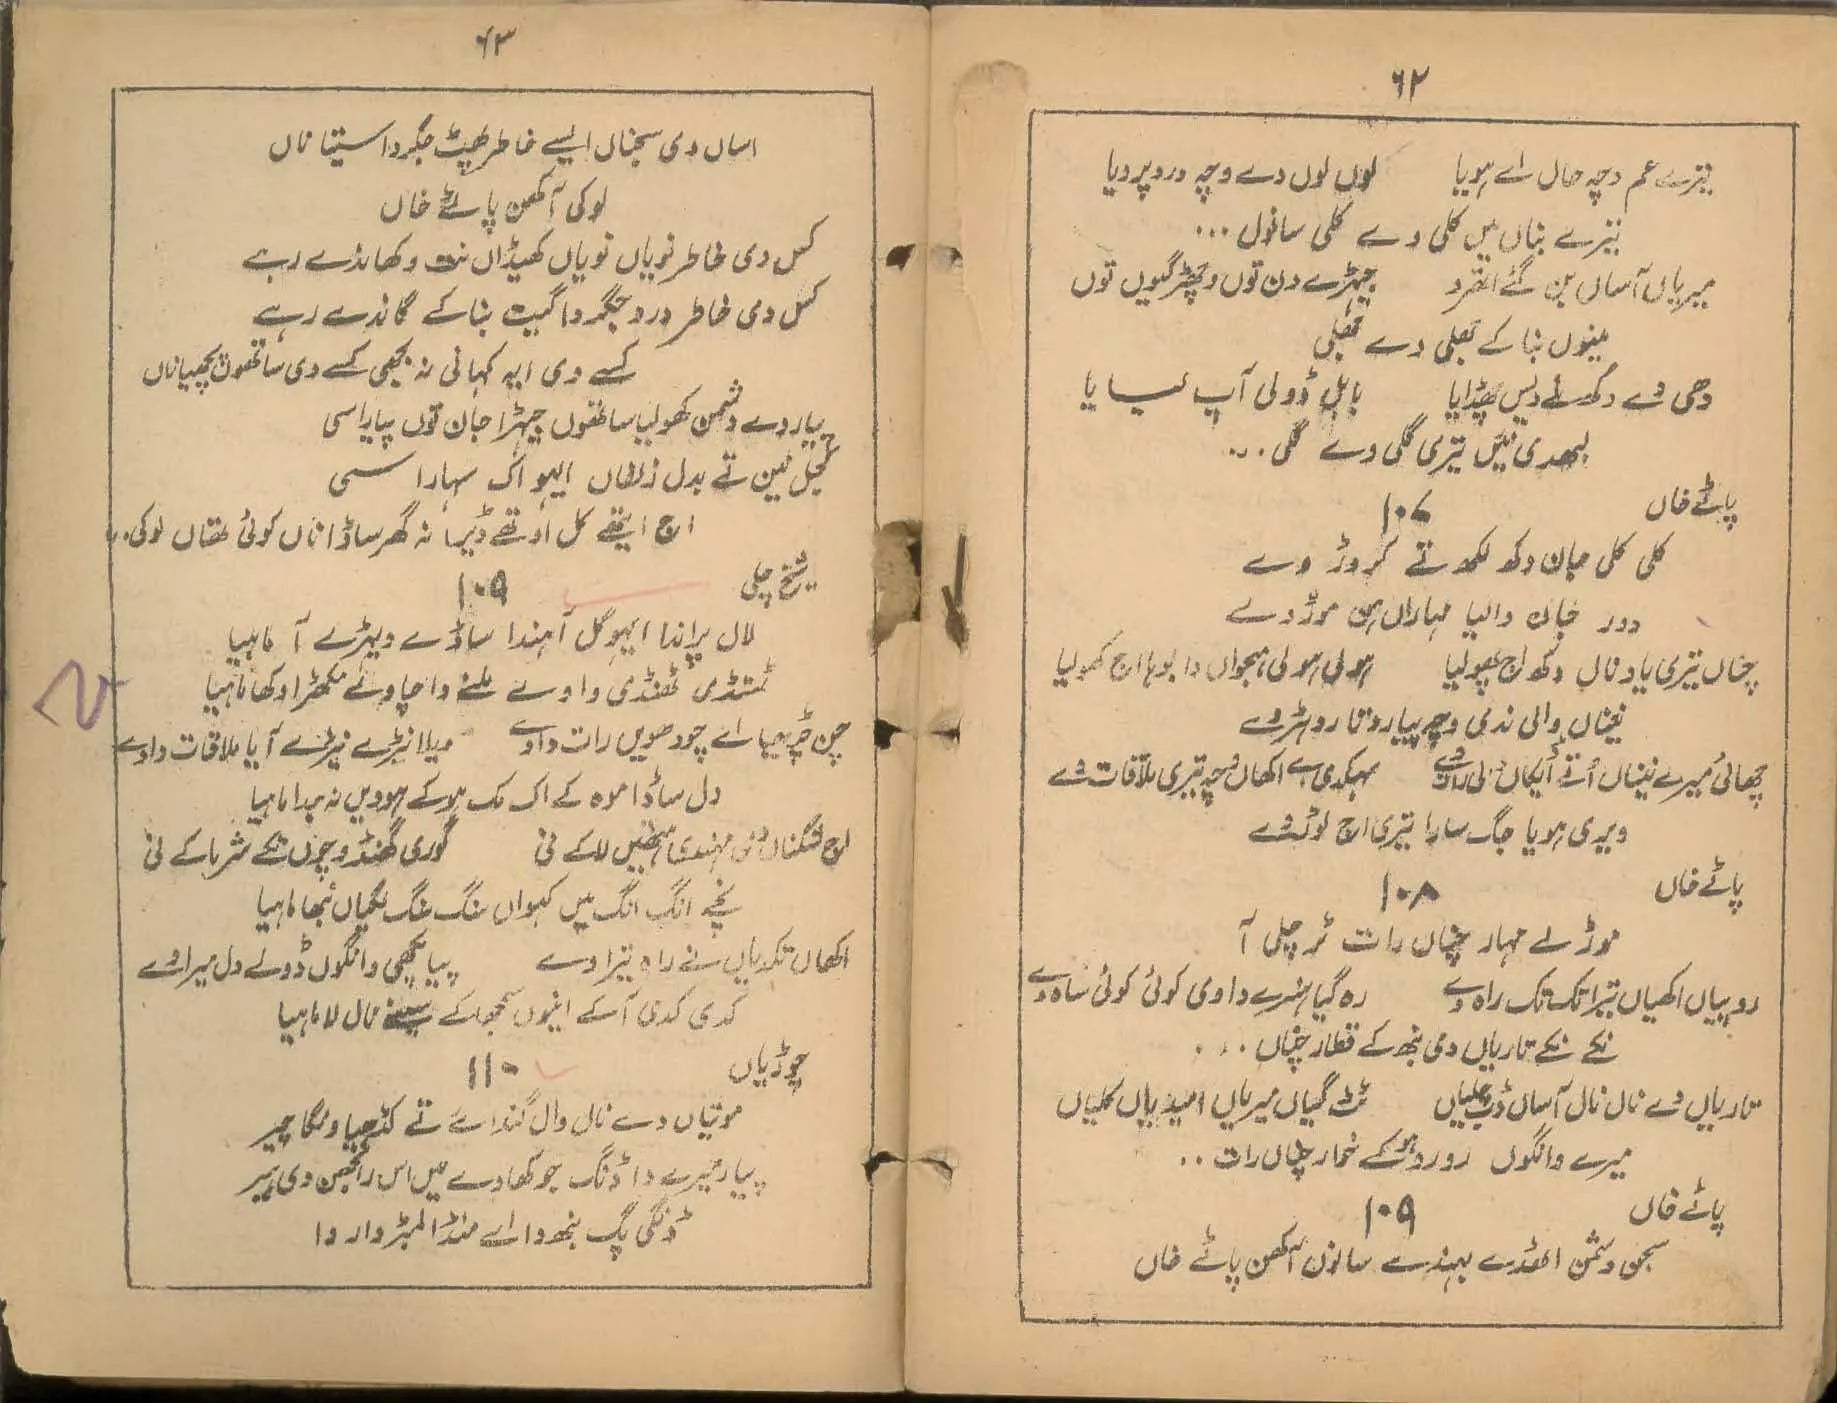 ۶۲
تیرے غم وچہ حال اے ہویا لوں لوں دے وچہ درد پرویا
تیرے بناں میں کلی وے کلی سانول ...
میریاں آساں بن گئے اتھرو جیہڑے دن توں وچھڑ گیوں توں
مینوں بنا کے جھلی وے جھلی
دھی دے دکھ نے دیس چھڈایا بابل ڈولی آپ لیایا
لبھدی نئیں تیری گلی وے گلی ...
پاٹے خاں
۱۰۷
کلی کلی جان دکھ لکھ تے کروڑ وے
دور جان والیا مہاراں ہن موڑ وے
چناں تیری یاد نال دکھ اج پھولیا ہولی ہولی ہنجواں دا بوہا اج کھولیا
نیناں والی ندی وچہ پیار دتا روہڑ وے
چھائی میرے نیناں اُتے کالی رات وے سہکدی اے اکھاں وچہ تیری ملاقات وے
ویری ہویا جگ سارا تیری اج لوڑ وے
پاٹے خاں
۱۰۸
موڑ لے مہار چناں رات ٹر چلی آ
رو پیاں اکھیاں تیرا تک تک راہ وے رہ گیا ہنیرے دا وی کوئی کوئی ساہ وے
نکے نکے تاریاں دی بنھ کے قطار چناں ...
تاریاں دے نال نال آساں ڈب چلیاں ٹٹ گیاں میریاں امیداں کلیاں
میرے وانگوں رو رو کے خمار چناں رات ..
پاٹے خاں
۱۰۹
سجن دشمن اٹھدے بہندے سانوں آکھن پاٹے خاں
۶۳
اساں دی سجناں ایسے خاطر پھٹ جگر دا سیتا ناں
لوکی آکھن پاٹے خاں
کس دی خاطر نویاں نویاں کھیڈاں نت وکھاندے رہے
کس دی خاطر درد جگر دا گیت بنا کے گاندے رہے
کسے دی ایہ کہانی نہ بجھی کسے دی ساتھوں پچھیا ناں
پیار دے دشمن کھولیا ساتھوں جیہڑا جان توں پیارا سی
کجل نین تے بدل زلفاں ایہو اک سہارا سی
اج ایتھے کل اوتھے ڈیرا نہ گھر ساڈا ناں کوئی تھاں لوکی..
شیخ چلی
۱۰۹
لال پراندا ایہو گل آہندا ساڈے ویہڑے آ ماہیا
ٹھنڈی ٹھنڈی وا وے ملنے دا چا وے مکھڑا وکھا ماہیا
چن چڑھیا اے چودھویں رات دا وے ویلا نیڑے نیڑے آیا ملاقات دا وے
دل ساڈا موہ کے اک مک ہو کے ہوویں نہ جدا ماہیا
اج شگناں دی مہندی ہتھیں لا کے نی گوری گھنڈ وچوں تکے شرما کے نی
نچے انگ انگ میں کہواں سنگ سنگ لگیاں نبھا ماہیا
اکھاں تکدیاں نے راہ تیرا وے پیا پنچھی وانگوں ڈولے دل میرا وے
کدی کدی آ کے اینوں سمجھا کے سینے نال لا ماہیا
چوڑیاں
۱۱۰
موتیاں دے نال وال گنداے تے کڈھیا ونگا چیر
پیار میرے دا ڈنگ جو کھاوے میں اس رانجھن دی ہیر
ڈنگی پگ بنھدا اے منڈا لمبڑدار دا